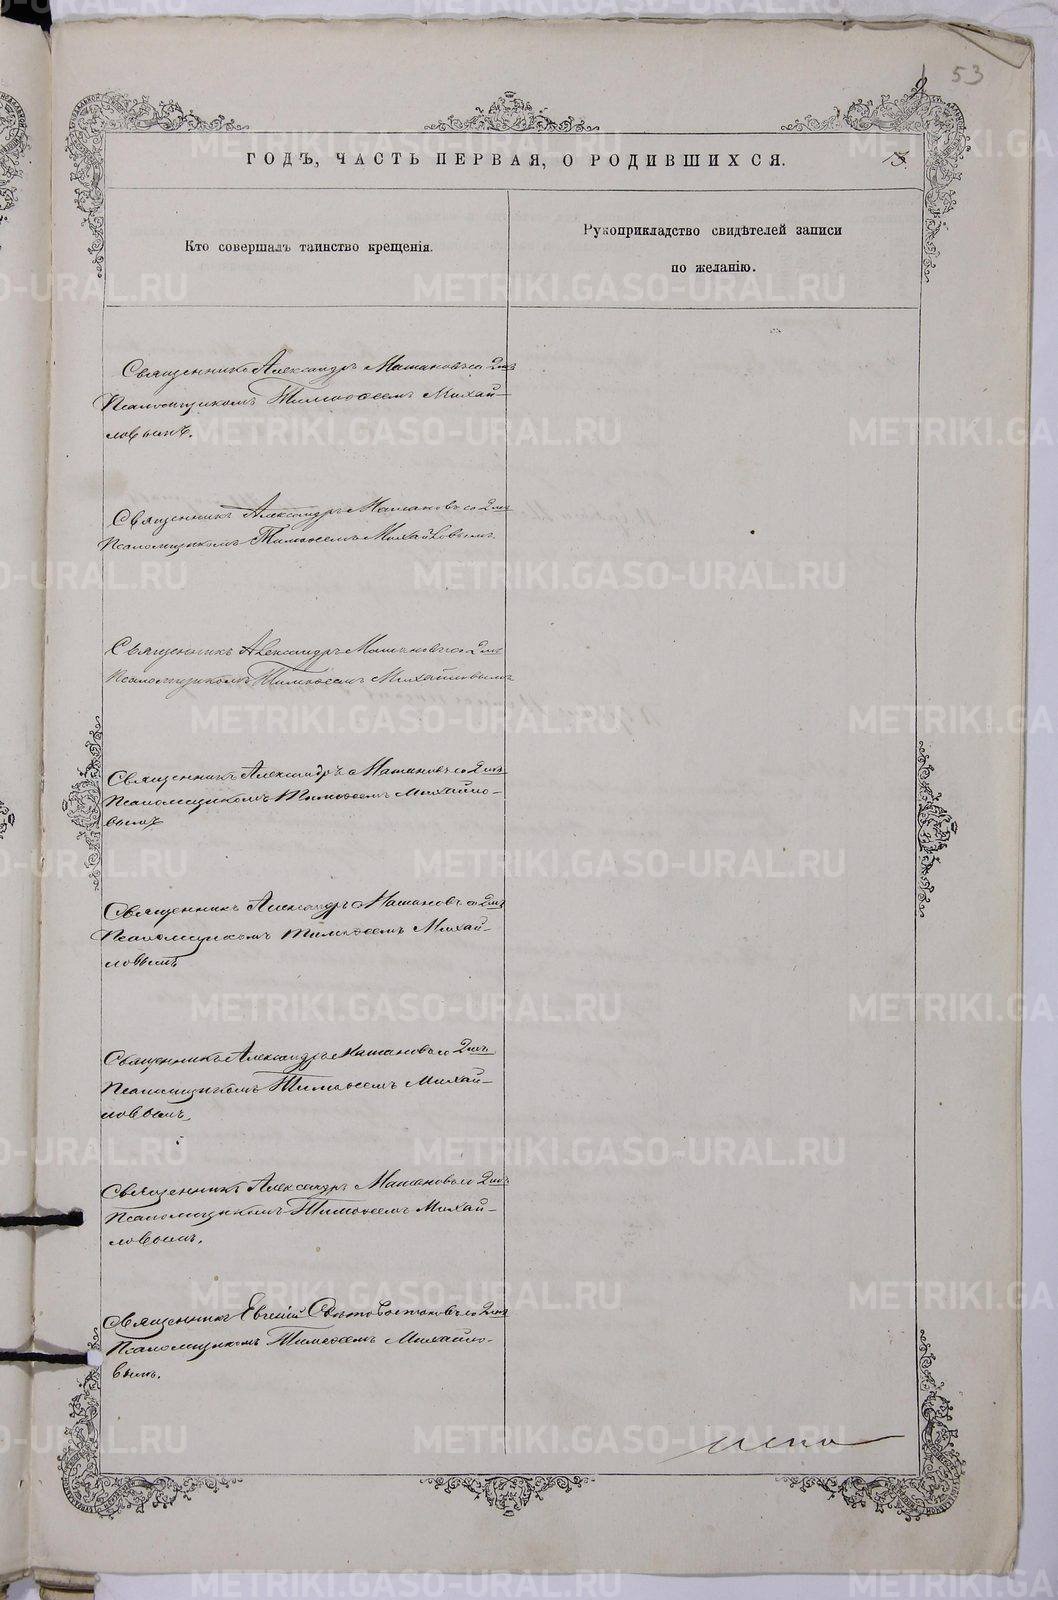 53
ГОДЪ, ЧАСТЬ ПЕРВАЯ, О РОДИВШИХСЯ.
Кто совершалъ таинство крещенія.
Рукоприкладство свидѣтелей записи
по желанію.
Священникъ Александръ Матановъ со 2мъ
Псаломщикомъ Тимоѳеемъ Михай-
ловымъ.
Священникъ Александръ Матановъ со 2мъ
Псаломщикомъ Тимоѳеемъ Михайловымъ
Священникъ Александръ Матановъ со 2мъ
Псаломщикомъ Тимоѳеемъ Михайловымъ
Священникъ Александръ Матановъ со 2мъ
Псаломщикомъ Тимоѳеемъ Михайло-
вымъ
Священникъ Александръ Матановъ со 2мъ
Псаломщикомъ Тимоѳеемъ Михай-
ловымъ
Священникъ Александръ Матановъ со 2мъ
Псаломщикомъ Тимоѳеемъ Михай-
ловымъ
Священникъ Александръ Матановъ со 2мъ
Псаломщикомъ Тимоѳеемъ Михай-
ловымъ.
Священникъ Евгеній со 2мъ
Псаломщикомъ Тимоѳеемъ Михайло-
вымъ.
METRIKI.GASO-URAL.RU